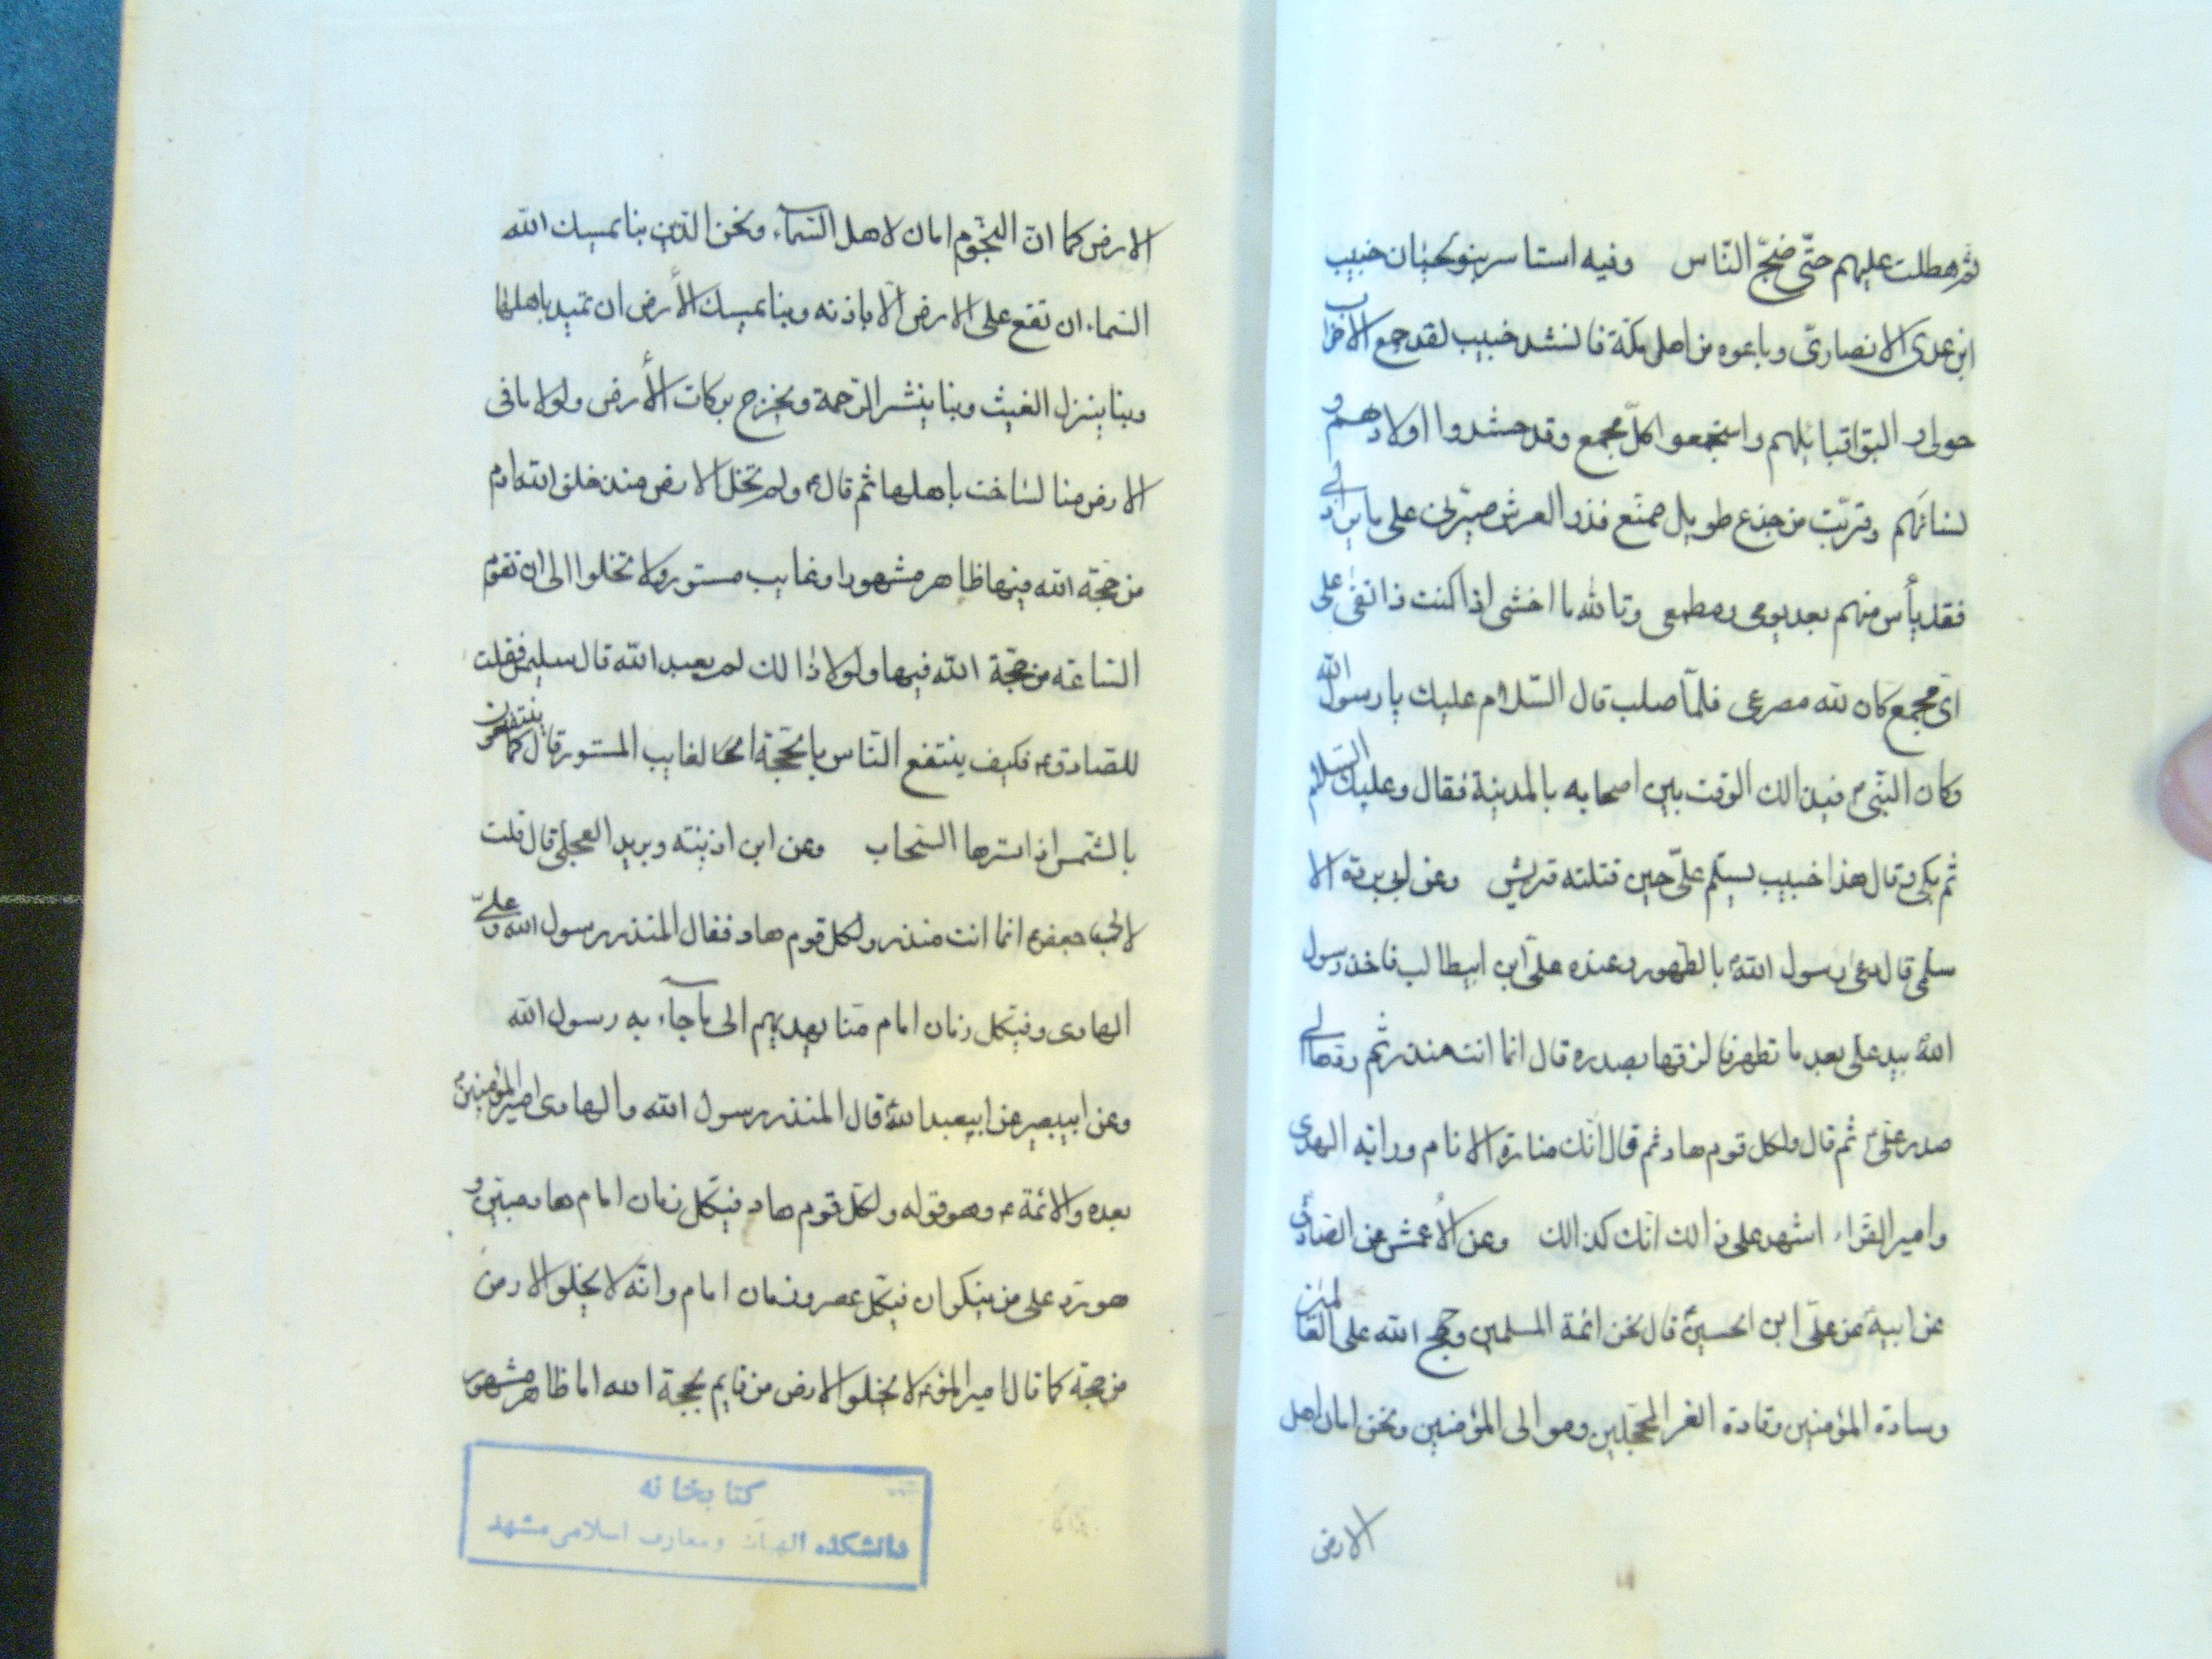 ثم هطلت عليهم حتّى ضجّ النّاس وفيه استاسر بنو لحيان خبيب
ابن عدى الانصارىّ وباعوه من اهل مكّة فانشد خبيب لقد جمع الاحزاب
حولى و البوا قبايلهم واستجمعوا كلّ مجمع وقد حشدوا اولادهم و
نسائهم وقربّت من جذع طويل ممنّع فذو العرش صبّرنى على ما يراد لى
فقد يأس منهم بعد يومى ومطمعى وتالله ما اخشى اذا كنت ذا تقى على
اىّ مجمع كان لله مصرعى فلمّا صلب قال السّلام عليك يا رسول الله
وكان النّبى فيذالك الوقت بين اصحابه بالمدينة فقال وعليك السّلام
ثم بكى وقال هذا خبيب يسلّم علىّ حين قتلته قريش وعن ابى بردة الا
سلمى قال دعى رسول الله بالطّهور وعنده علىّ ابن ابيطالب فاخذ رسول
الله بيد على بعد ما تطهر فالزقها بصدره قال انما انت منذر ثم ردها الى
صدر علىّ ثم قال ولكل قوم هاد ثم قال انّك منارة الانام وراية الهدى
وامير القراء اشهد على ذالك انّك كذالك وعن الأعمش عن الصّادق
عن ابيه عن علىّ ابن الحسين قال نحن ائمة المسلمين وحجج الله على العالمين
وسادة المؤمنين وقادة الغر المحجّلين وموالى المؤمنين ونحن امان اهل
الارض
الارض كما انّ النجّوم امان لاهل السّماء ونحن الذين بنا يمسك الله
السّماء ان تقع على الارض الّا باذنه وبنا يمسك الأرض ان تميد باهلها
وبنا ينزل الغيث وبنا ينشر الرّحمة ويخرج بركات الأرض ولولا ما فى
الارض منا لساخت باهلها ثم قال ولم تخل الارض منذ خلق الله ادم
من حجّة الله فيها ظاهر مشهور او غايب مستور ولا تخلوا الى ان تقوم
السّاعة من حجّة الله فيها ولولا ذالك لم يعبد الله قال سليمن فقلت
للصّادق ع فكيف ينتفع النّاس بالحجّة الغايب المستور قال كما ينتفعون
بالشّمس اذا سترها السّحاب وعن ابن اذينة وبريد العجلى قال قلت
لابى جعفر ع انما انت منذر ولكل قوم هاد فقال المنذر رسول الله وعلىّ
الهادى وفيكل زمان امام منّا يهديهم الى ما جآء به رسول الله
وعن ابيبصير عن ابيعبدالله قال المنذر رسول الله والهادى امير المؤمنين
بعده والائمة ع وهو قوله ولكلّ قوم هاد فيكلّ زمان امام هاد مبين و
هو ردّ على من ينكر ان فيكلّ عصر وزمان امام وانّه لا يخلو الارض
من حجة كما قال امير المؤمنين لا يخلو الارض من قايم بحجة الله اما ظاهر مشهور
كتابخانه
دانشكده الهيات ومعارف اسلامى مشهد